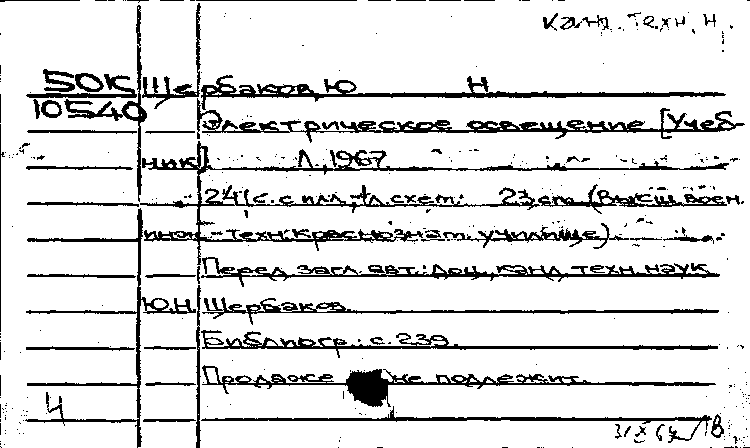 канд. техн. н.
50К Щербаков, Ю Н.
10540 Электрическое освещение [Учеб-
ник]. Л., 1967
241 с. с илл., 1 л. схем. 23 см. (Высш. воен.
инж.-техн. Краснознам. училище).
Перед загл. авт.: доц., канд. техн. наук
Ю.Н. Щербаков.
Библиогр.: с. 239.
Продаже не подлежит.
Ч